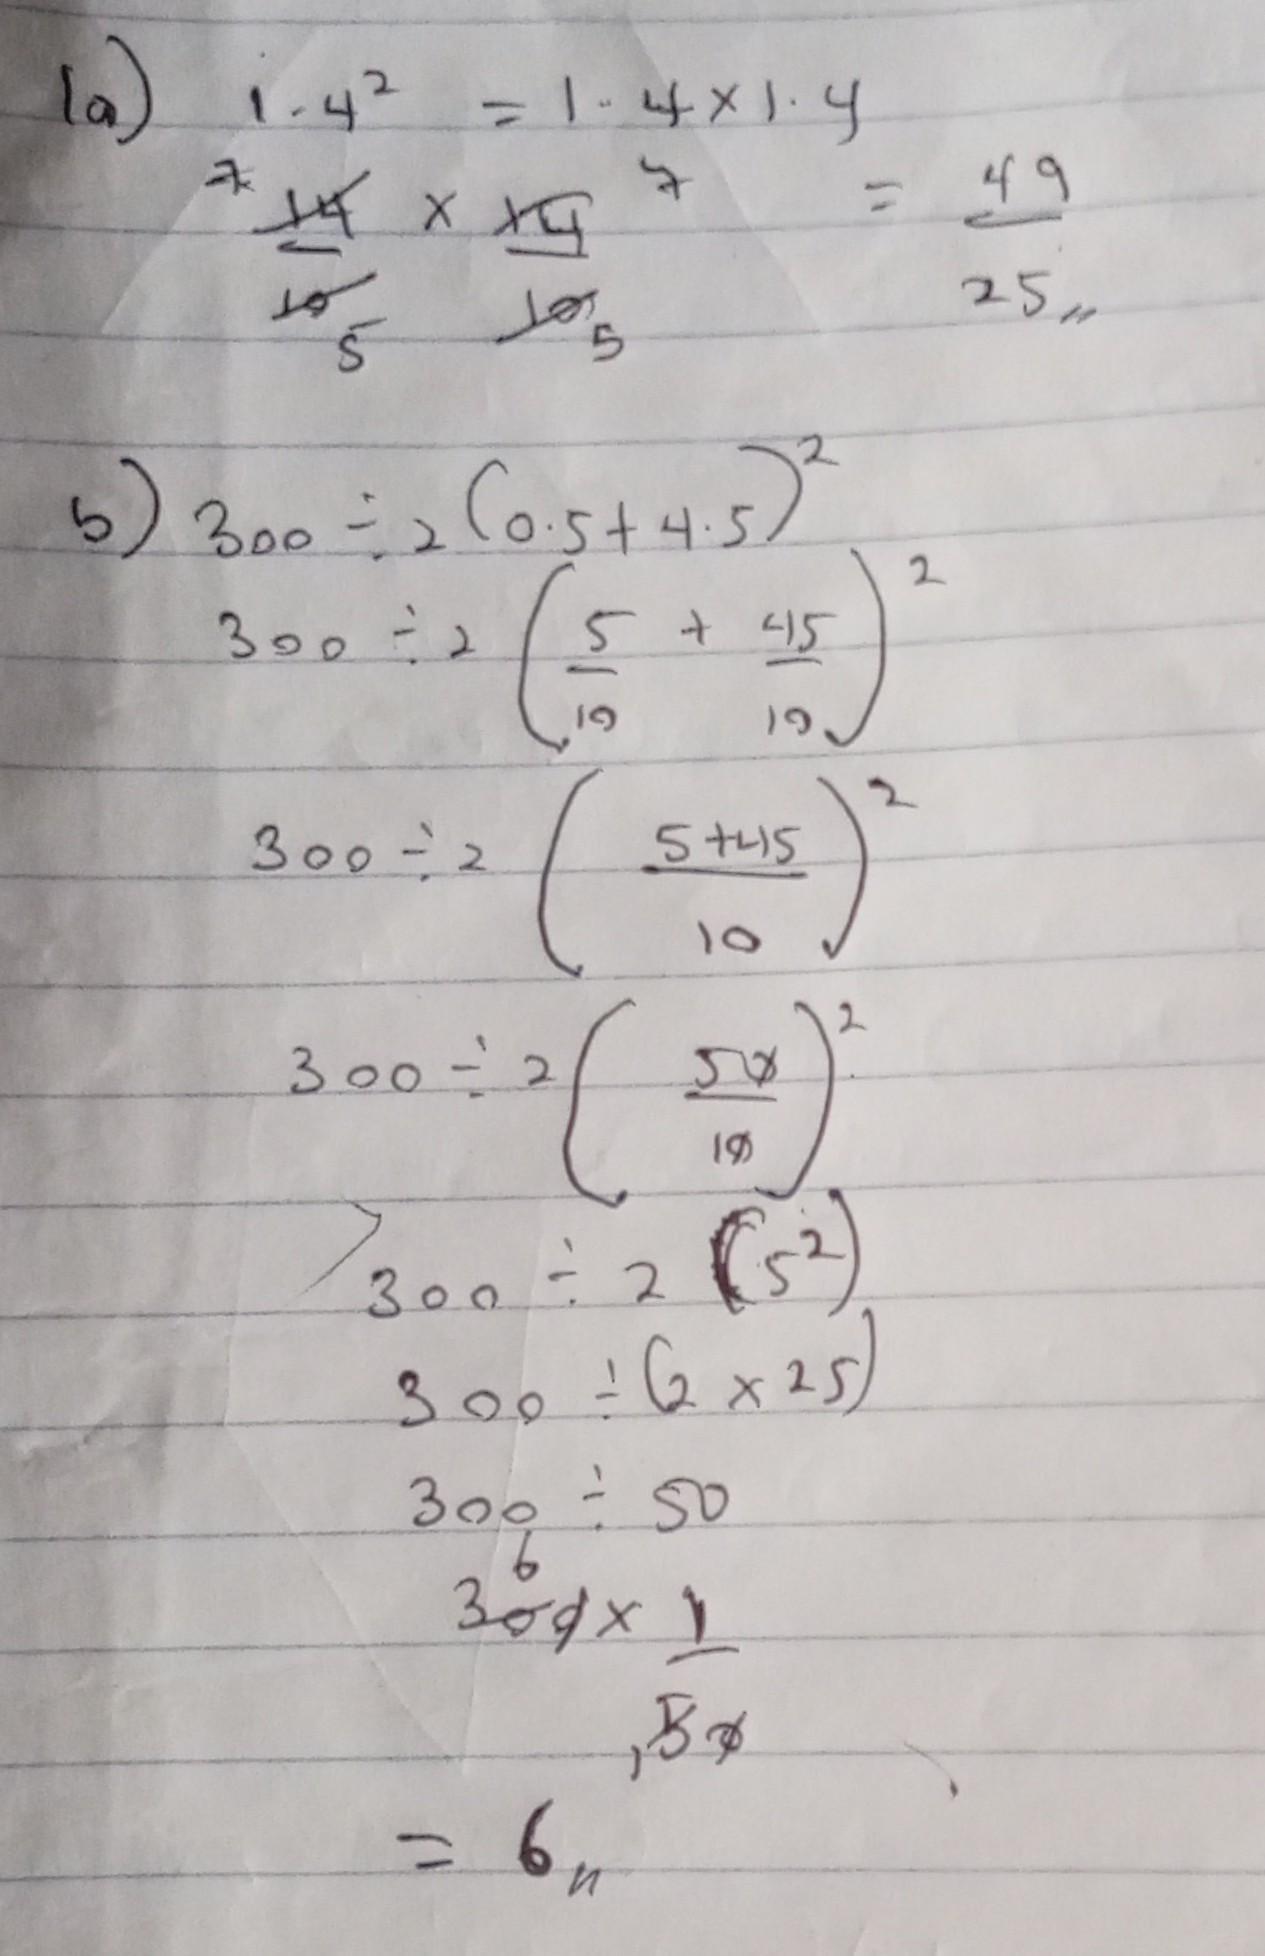 1a) 1.4² = 1.4 × 1.4
7 14/10 5 × 14/10 5 7 = 49/25,,
b) 300 ÷ 2(0.5 + 4.5)²
300 ÷ 2 (5/10 + 45/10)²
300 ÷ 2 (5+45/10)²
300 ÷ 2 (50/10)²
300 ÷ 2 (5²)
300 ÷ (2 × 25)
300 ÷ 50
6
300 × 1/50
= 6,,